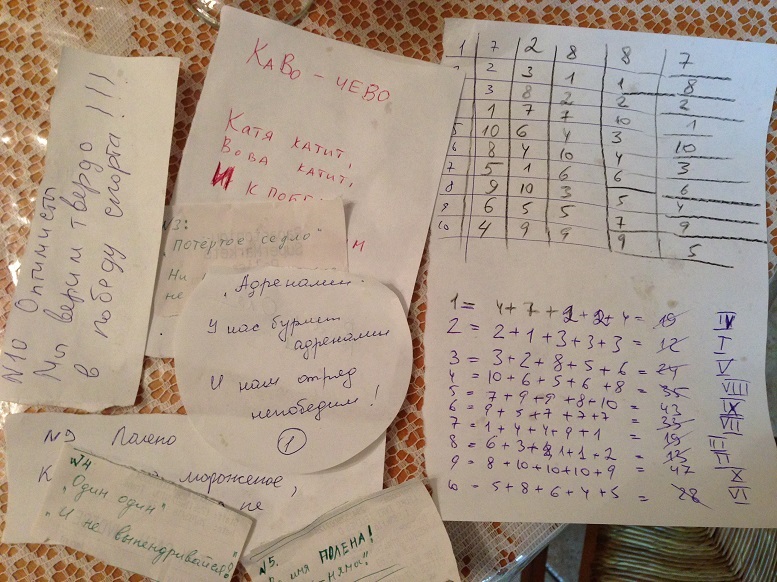 N10 Оптимисты
Мы верим твердо
в победу спорта!!!
КАВО - ЧЕВО
КАТЯ КАТИТ,
ВОВА КАТИТ,
И К ПОБЕ
N3:
"Потёртое седло"
Ни
не
"Адреналин"
У нас бурлит
адреналин
И наш отряд
непобедим!
1
N9 Полено
К мороженое,
не
N4
"Один один"
"И не выпендривайся!"
N5.
имя ПОЛЕНА!
1 7 2 8 8 7
2 3 1 1 8
3 8 2 2 2
1 7 7 10 1
5 10 6 4 3 10
6 8 4 10 4 3
7 5 1 6 6 6
8 9 10 3 5 4
9 6 5 5 7 9
10 4 9 9 9 5
1 = 4+7+2+2+4= 19 IV
2 = 2+1+3+3+3 = 12 I
3 = 3+2+8+5+6 = 24 V
4 = 10+6+5+6+8 = 35 VIII
5 = 7+9+9+8+10 = 43 IX
6 = 9+5+7+7+7 = 35 VII
7 = 1+4+4+9+1 = 19 III
8 = 6+3+2+1+1+2 = 13 II
9 = 8+10+10+10+9 = 47 X
10 = 5+8+6+4+5 = 28 VI